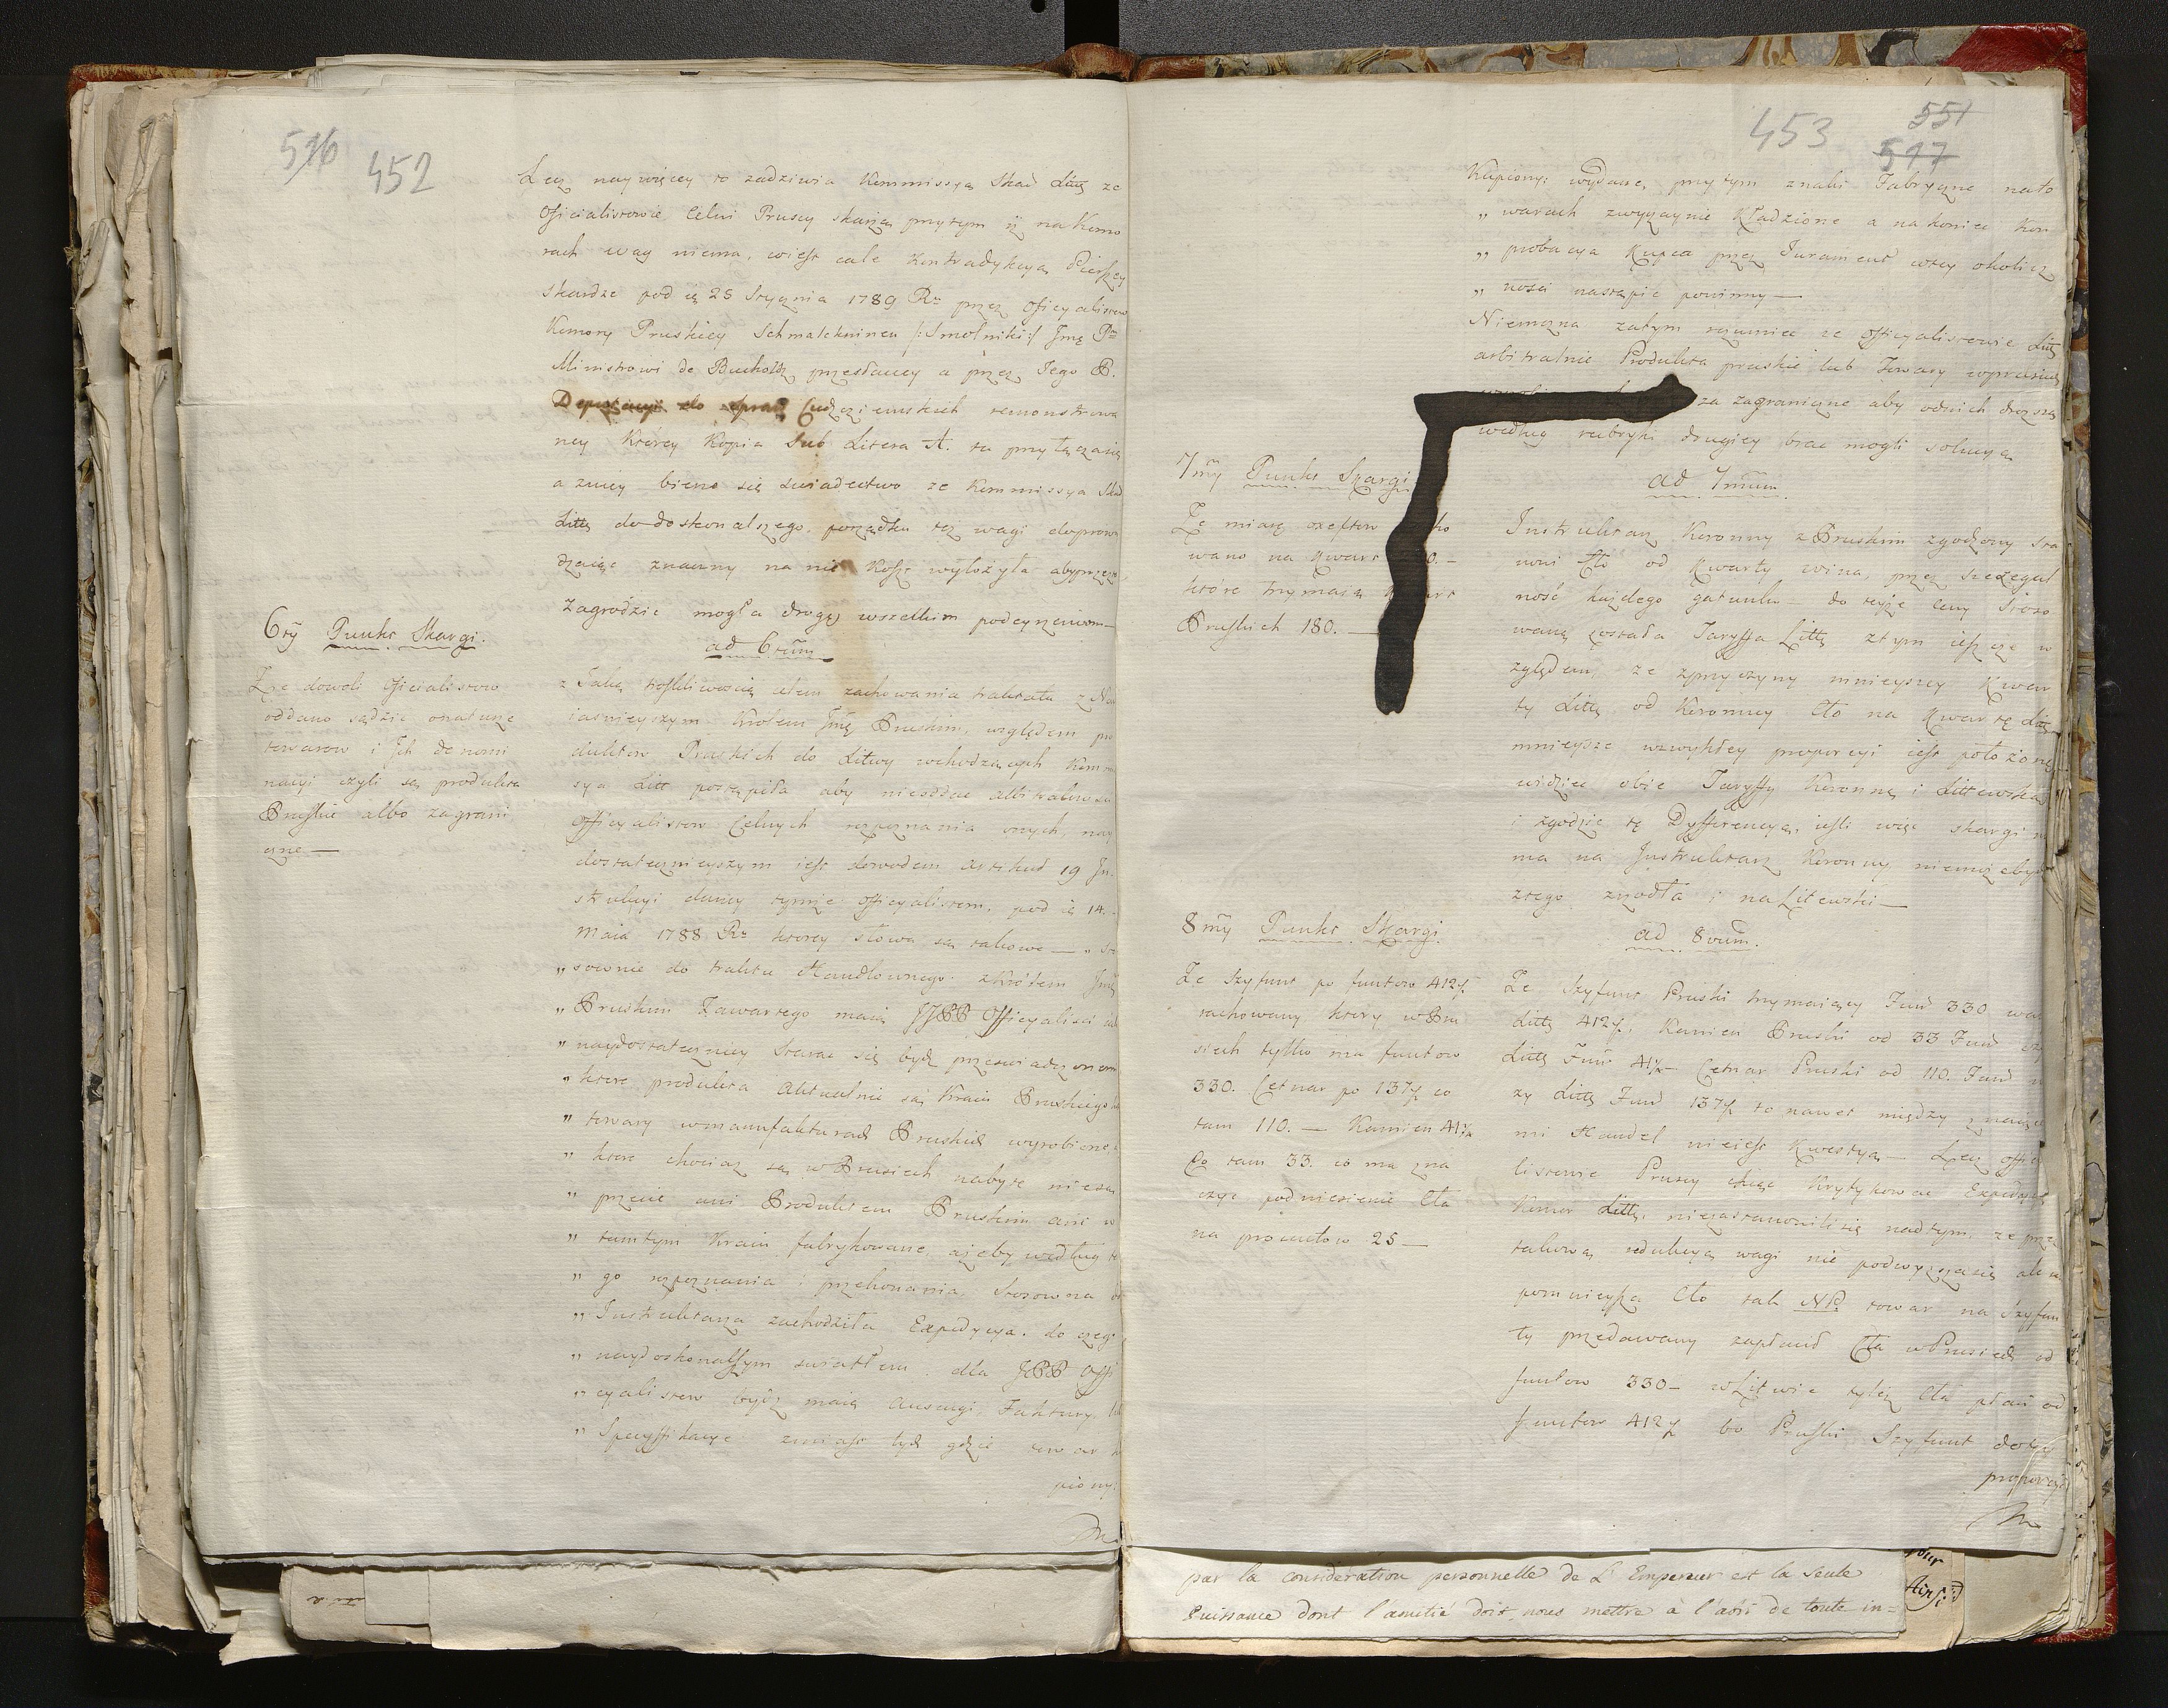 516 452
Lecz naywięcey to zadziwia Kommissyą Skar. Litt: że
Oficialistowie Celni Pruscy skarżą przytym iż na Komo
rach wag niema, wiest cale kontradykcyą Pierszey
Skardze pod ią 25 Stycznia 1789 Ru przez Oficyalistow
Komory Pruskiey Schmalekninen /:Smolniki:/ Jmę Pu
Ministrowi de Bucholtz przesłaney a przez Jego B.
Deputacyi do Spraw Cudzoziemskich remonstrowa
ney którey Kopia Sub Litera A. tu przyłącza się
a z niey bierze się swiadectwo że Kommissya Skar
Litt: do doskonalszego porządku też wagi doprowa
dzaiąc znaczny na nie koszt wyłożyła aby przeze
zagrodzić mogła drogę wszelkim podeyzrzeniom —
6ty Punkt Skargi.
Że dowoli Oficialistow
oddano sądzić o naturze
towarow i Jch denomi
nacyi czyli są produkta
Pruskie albo zagrani
czne —
ad 6tum
z Jaką troskliwością celem zachowania traktatu z Nay
iasnieyszym Krolem Jmę Pruskim, względem pro
duktow Pruskich do Litwy wchodzących Kommi
sya Litt postąpiła aby nieoddać arbitralnosci
Officyalistow Celnych rozpoznania onych, nay
dostatecznieyszym iest dowodem artykuł 19 Jn
strukcyi daney tymże Officyalistom, pod ią 14.
Maia 1788 Ru ktorey słowa są takowe — „ sto
„ sownie do traktu Handlownego z Królem Jmę
„ Pruskim Zawartego maią JJPP Officyalisci iak
„ naydostateczniey starać się bydź przeswiadczonemi
„ ktore produkta aktualnie są Kraiu Pruskiego lub
„ towary w manufakturach Pruskich wyrobione, a
„ ktore chociaż są w Prusiech nabyte nie są
„ przecie ani Produktem Pruskim ani w
„ tamtym Kraiu fabrykowane, ażeby według te
„ go rozpoznania i przekonania Stosowna do
„ Jnstruktarza zachodziła Expedycya. do czego
„ naydoskonalszym swiatłem dla JPP Offi
„ cyalistow bydź maią Auszugi, Faktury lub
„ Specyffikacye z miast tych gdzie towar ku
piony:
453 551
517
Kupiony: wydane, przytym znaki Fabryczne na to
„ warach zwyczaynie Kładzione a nakoniec kom
„ probacya Kupca przez Jurament w tey okolicz
„ nosci nastąpić powinny —
Niemozna zatym rozumiec ze Officyalistowie Litt:
arbitralnie Produkta pruskie lub Towary w prusiech
za zagraniczne aby od nich droższą
według rubryki drugiey brac mogli solucyą
7my Punkt Skargi
Że miarę oxeftow
wano na kwart
które trzymaią
Pruskich 180. —
ad 7mum.
Jnstruktarz Koronny z Pruskim zgodzony sta
nowi Cło od kwarty wina, przez szczegul
ność każdego gatunku — do teyże ceny stoso
waną została Taryffa Litt: z tym ieszcze w
zględem, że z przyczyny mnieyszey Kwar
ty Litt: od Koronney Cło na kwartę Litt:
mnieysze w zwykłey proporcyi iest położone
widzieć obie Taryffy Koronną i Littewską
i zgodzić tę Dyfferencyą, iesli więc skargi nie
ma na Jnstruktarz Koronny niemoże być
z tego zrzodła i na Litewski —
8my Punkt Skargi
Że Szyfunt po funtow 412½
rachowany ktory w Pru
siech tylko ma funtow
330. Cetnar po 137½ co
tam 110. — Kamien 41¼
Co tam 33. co ma zna
czyć podniesienie Cła
na procentow 25 —
ad 8vum.
Że Szyfunt Pruski trzymaiący Funt 330 waży
Litt: 412½, Kamien Pruski od 33 Funt czy
Litt: Funt 41¼ — Cetnar Pruski od 110. Funt wa
zy Litt: Funt 137½ to nawet między znaiące
mi Handel nieiest kwestyą — Lecz Officya
listowie Pruscy chcąc krytykować Expedycyą
Komor Litt: niezastanowili się nad tym, że przez
takową redukcyą wagi nie podwyższa się ale u
pomnieysza Cło tak NP. towar na Szyfun
ty przedawany zapłacił Cła w Prusiech od
funtow 330 — w Litwie tyleż Cła płaci od
funtow 412½ bo Pruski Szyfunt do tey
proporcyi
par la considération personnelle de L'Empereur est la Seule
Puissance dont l'amitié doit nous mettre à l'abri de toute in=
pour
Ainsi